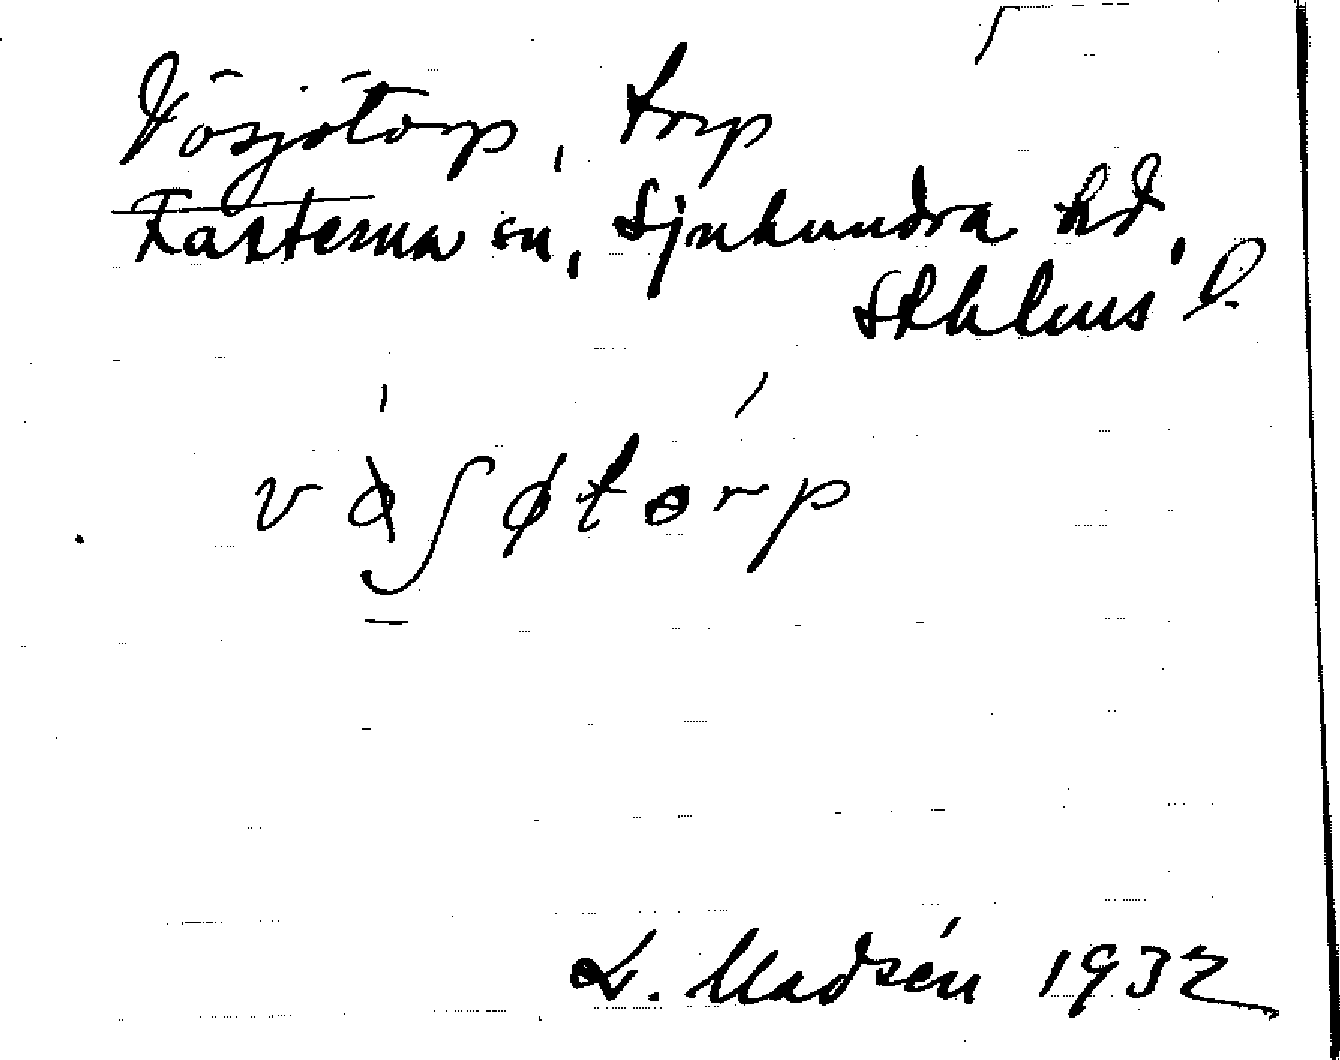 Vösjötorp, torp
Fasterna sn, Sjuhundra hd,
Sthlms l.
vø̀ʃøtɵrp
L. Madsén 1932